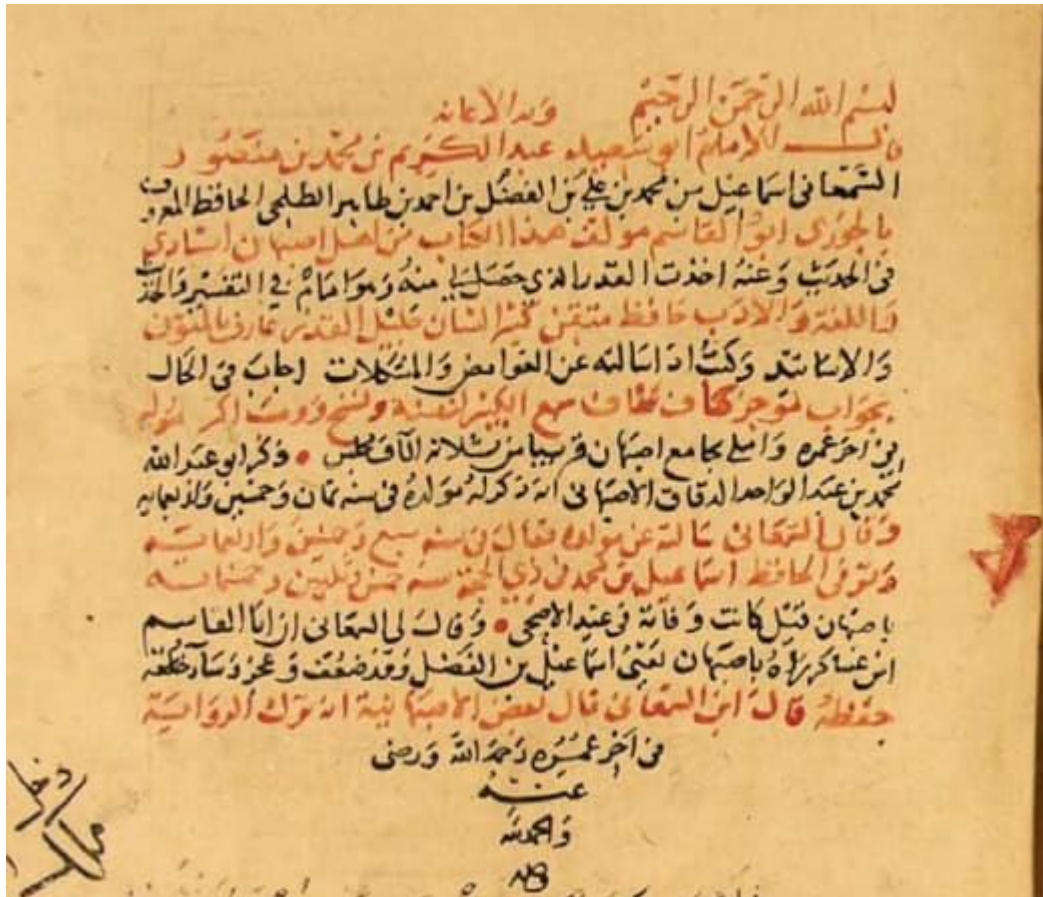 بسم الله الرحمن الرحيم وبه الاعانه
قال الامام ابو سعيد عبد الكريم بن محمد بن منصور
السمعاني اسماعيل بن محمد بن علي بن الفضل بن احمد بن طاهر الطلحي الحافظ المعروف
بالجوزي ابو القاسم مولف هذا الكتاب من اهل اصبهان استادي
في الحديث وعنه اخذت القدر الذي حصل لي منه وهو امام في التفسير والحديث
واللغة والادب حافظ متقن كبير الشان جليل القدر عارف بالمتون
والاسانيد وكنت اذا سالته عن الغوامض والمشكلات اجاب في الحال
بجواب سمع الكثير ونسخ
في اخر عمره واملى بجامع اصبهان قريبا من ثلاثة الاف مجلس • وذكر ابو عبد الله
محمد بن عبد الواحد الدقاق الاصبهاني انه ذكر له مولده في سنه ثمان وخمسين واربعمايه
وقال السمعاني سالته عن مولده فقال في سنه سبع وخمسين واربعمائه
وتوفي الحافظ اسماعيل بن محمد في ذي الحجة سنه خمس وثلثين وخمسمائه
باصبهان قيل كانت وفاته في عيد الاضحى • وقال لي السمعاني ان ابا القاسم
باصبهان يعني اسماعيل بن الفضل وقد ضعف وعجز وساء
حفظه قال ابن السمعاني قال بعض الاصبهانية انه ترك الرواية
في اخر عمره رحمه الله ورضي
عنه
والحمد لله